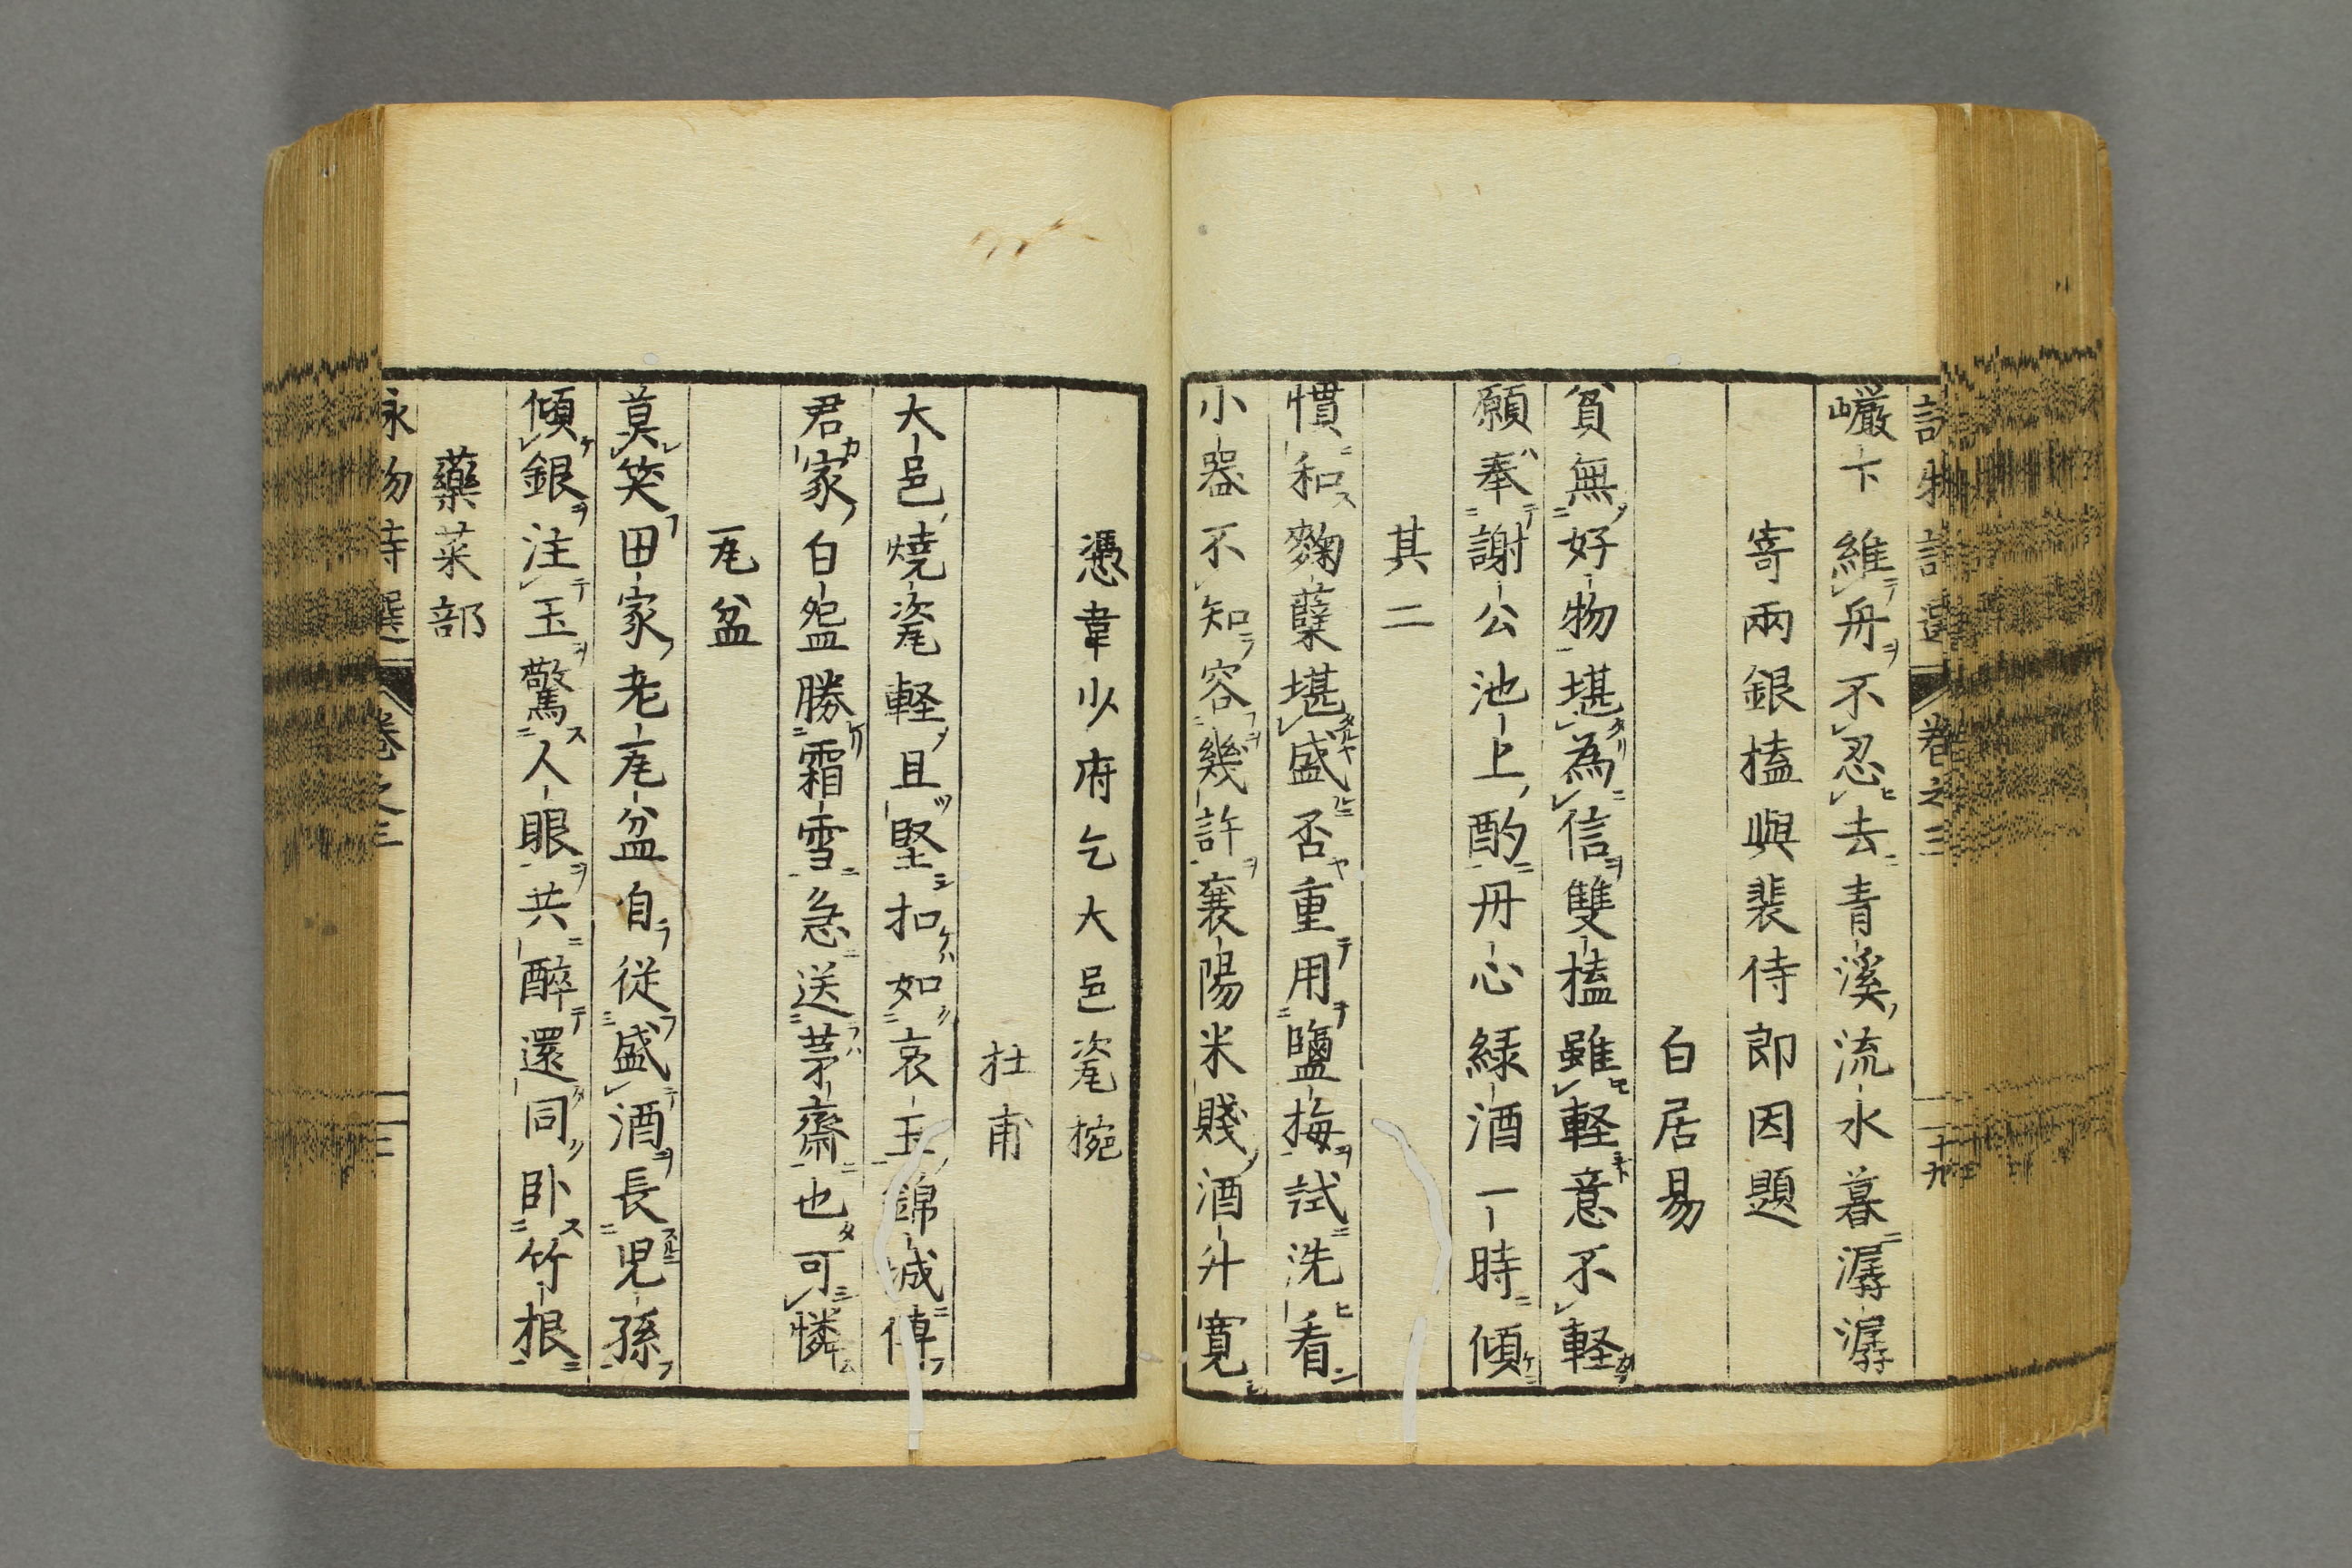 巖下維舟不忍去青溪流水暮潺潺
寄兩銀榼與裴侍郎因題
白居易
貧無好物堪為信雙榼雖軽意不軽
願奉謝公池上酌丹心緑酒一時傾
其二
慣和麹蘖堪盛否重用鹽梅試洗看
小器不知容幾許襄陽米賤酒升寛
憑韋少府乞大邑瓷椀
杜甫
大邑燒瓷軽且堅扣如哀玉錦城傳
君家白盌勝霜雪急送茅齋也可憐
瓦盆
莫笑田家老瓦盆自従盛酒長児孫
傾銀注玉驚人眼共醉還同卧竹根
藥菜部
詠物詩選 卷之三